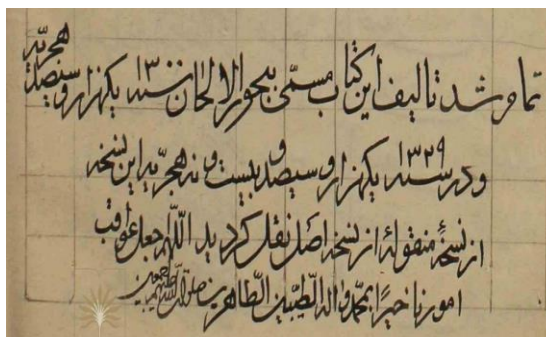 تمام شد تالیف این کتاب مسمّی ببحور الالحان سنه ۱۳۰۰ یکهزار و سیصد هجریه
و در سنه ۱۳۲۹ یکهزار و سیصد و بیست و نه هجریه این نسخه
از نسخهٔ منقوله از نسخه اصل نقل کردید اللّهم اجعل عواقب
امورنا خیراً بمحمّد و اله الطّیّبین الطّاهرین صلوة الله علیهم اجمعین